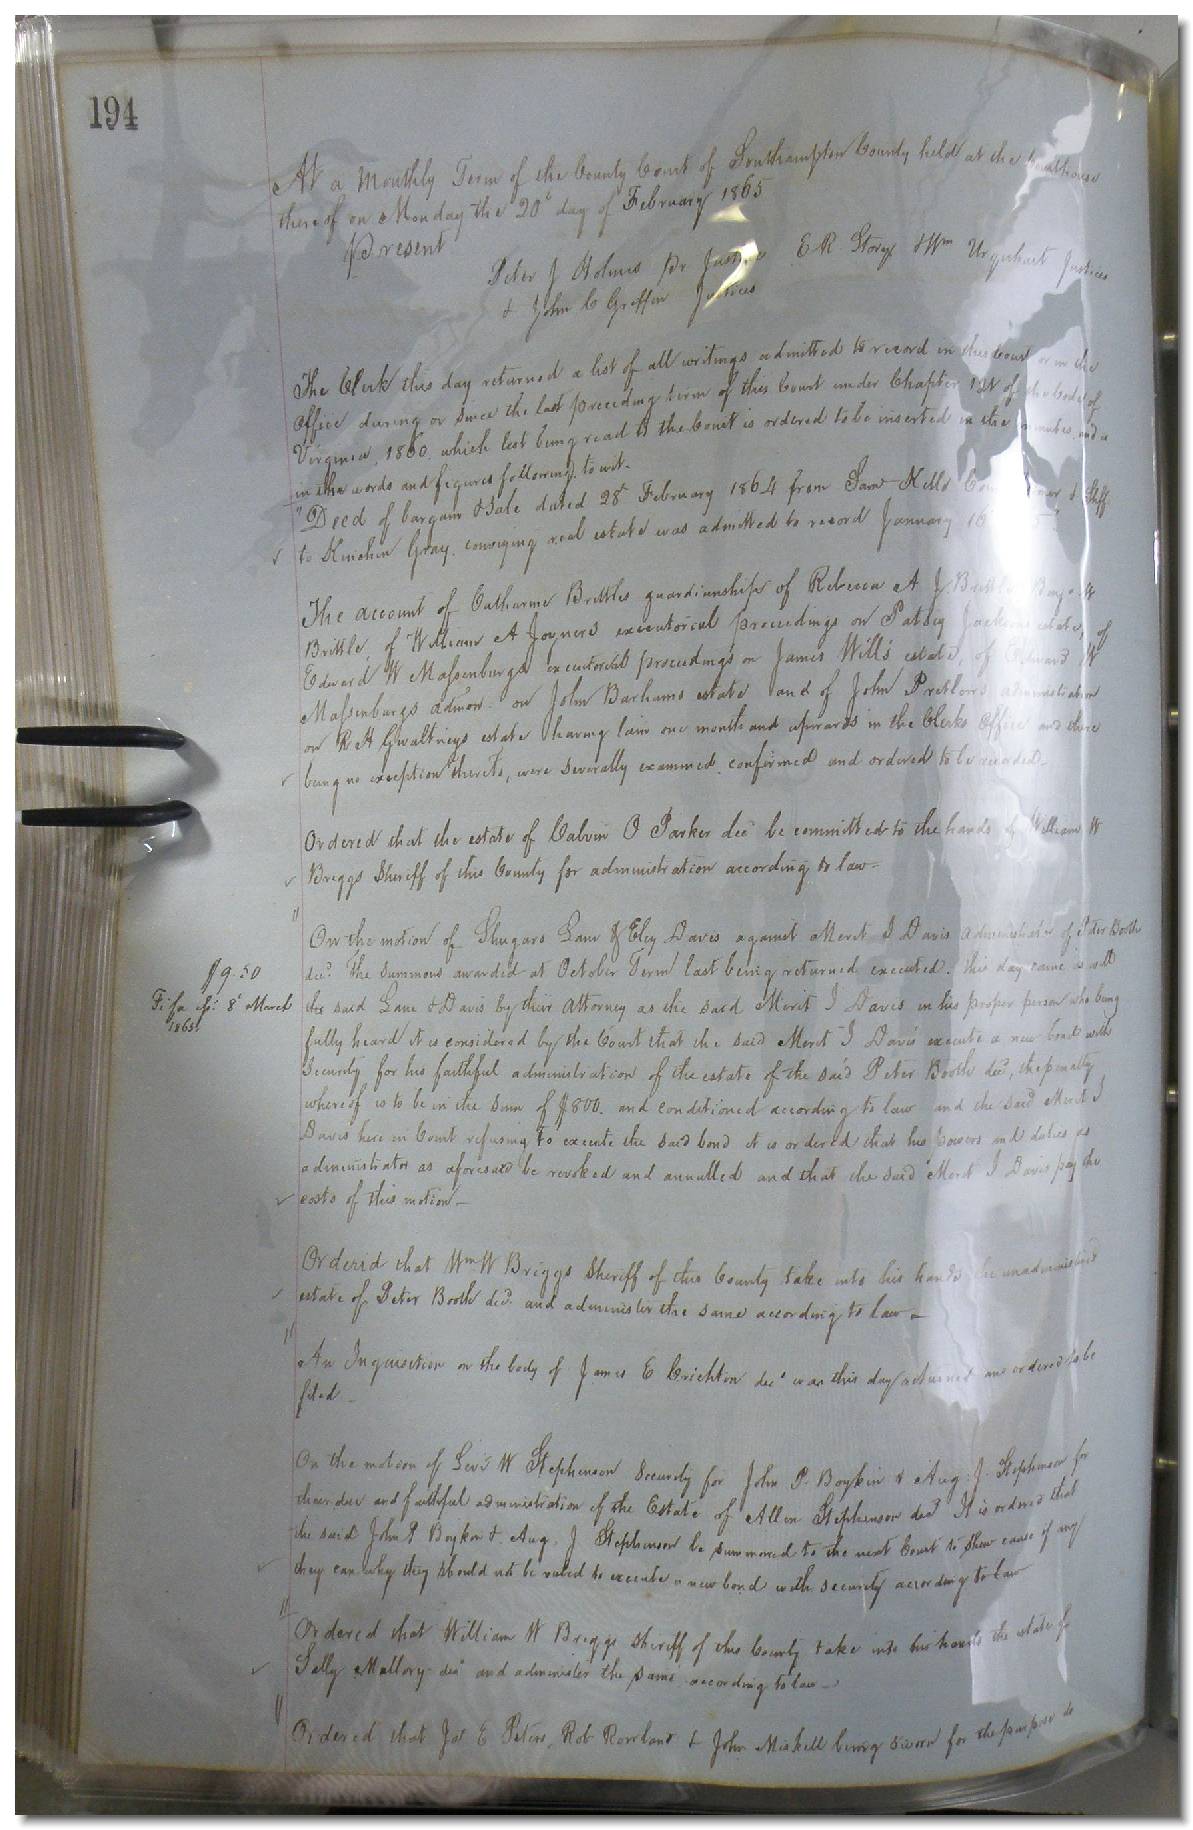 194
At a Monthly Term of the County Court of Southampton County held at the Courthouse
thereof on Monday the 20th day of February 1865
Present
Peter J Holmes Pr Justice E R Story & Wm Urquhart Justices
& John C Griffin Justices
The Clerk this day returned a list of all writings admitted to record in this Court or in the
Office during or since the last preceding term of this Court under Chapter 121 of the Code of
Virginia, 1860, which list being read to the Court is ordered to be inserted in the minutes and is
in the words and figures following, to wit.
"Deed of bargain & Sale dated 28th February 1864 from Saml Kello
to Kinchen Gray, conveying real estate was admitted to record January 16
The account of Catharine Brittles guardianship of Rebecca A J Brittle,
Brittle, of William A Joyners executorial proceedings on Patsey Jacksons estate, of
Edward W Massenburgs executorial proceedings on James Wills estate, of Edward W
Massenburgs admon. on John Barhams estate and of John Pretlows administration
on R H Gwaltneys estate having lain one month and upwards in the Clerks Office and there
being no exception thereto, were severally examined, confirmed and ordered to be recorded.
Ordered that the estate of Calvin O Parker decd be committed to the hands of William W
Briggs Sheriff of this County for administration according to law.
On the motion of Shugars Lane & Eley Davis against Merit I Davis administrator of Peter Booth
decd. The summons awarded at October Term last being returned executed. This day came as well
$9.50
the said Lane & Davis by their Attorney as the said Merit I Davis in his proper person who being
Fi: fa 8th March
1865
fully heard it is considered by the Court that the said Merit I Davis execute a new bond with
Security for his faithful administration of the estate of the said Peter Booth decd, the penalty
whereof is to be in the sum of $800. and conditioned according to law and the said Merit I
Davis here in Court refusing to execute the said bond it is ordered that his powers and duties as
administrator as aforesaid be revoked and annulled and that the said Merit I Davis pay the
costs of this motion
Ordered that Wm W Briggs Sheriff of this County take into his hands the unadministered
estate of Peter Booth decd. and administer the same according to law
An Inquisition on the body of James E Crichton decd was this day returned and ordered to be
filed
On the motion of Levi W Stephenson Security for John P. Boykin & Aug: J. Stephenson for
their due and faithful administration of the Estate of Allen Stephenson decd It is ordered that
the said John P Boykin & Aug. J Stephenson be summoned to the next Court to shew cause if any
they can why they should not be ruled to execute a new bond with security according to law
Ordered that William W Briggs Sheriff of this County take into his hands the estate of
Sally Mallory decd and administer the same according to law
Ordered that Jas E Peters, Rob Rowland & John Miskell being sworn for the purpose do